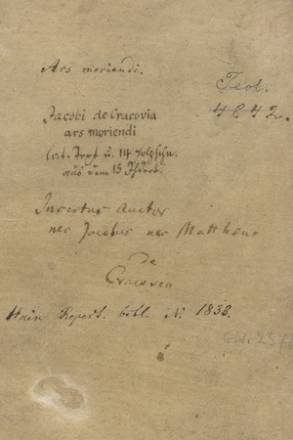 Ars moriendi.
Teol.
4 C 42.
Jacobi de Cracovia
ars moriendi
lat. Text u. 14 Holzschn.
aus dem 15 Jhdert.
Incertus Auctor
nec Jacobus nec Matthæus
de
Cracovia
Hain Repert. bibl. N. 1833.